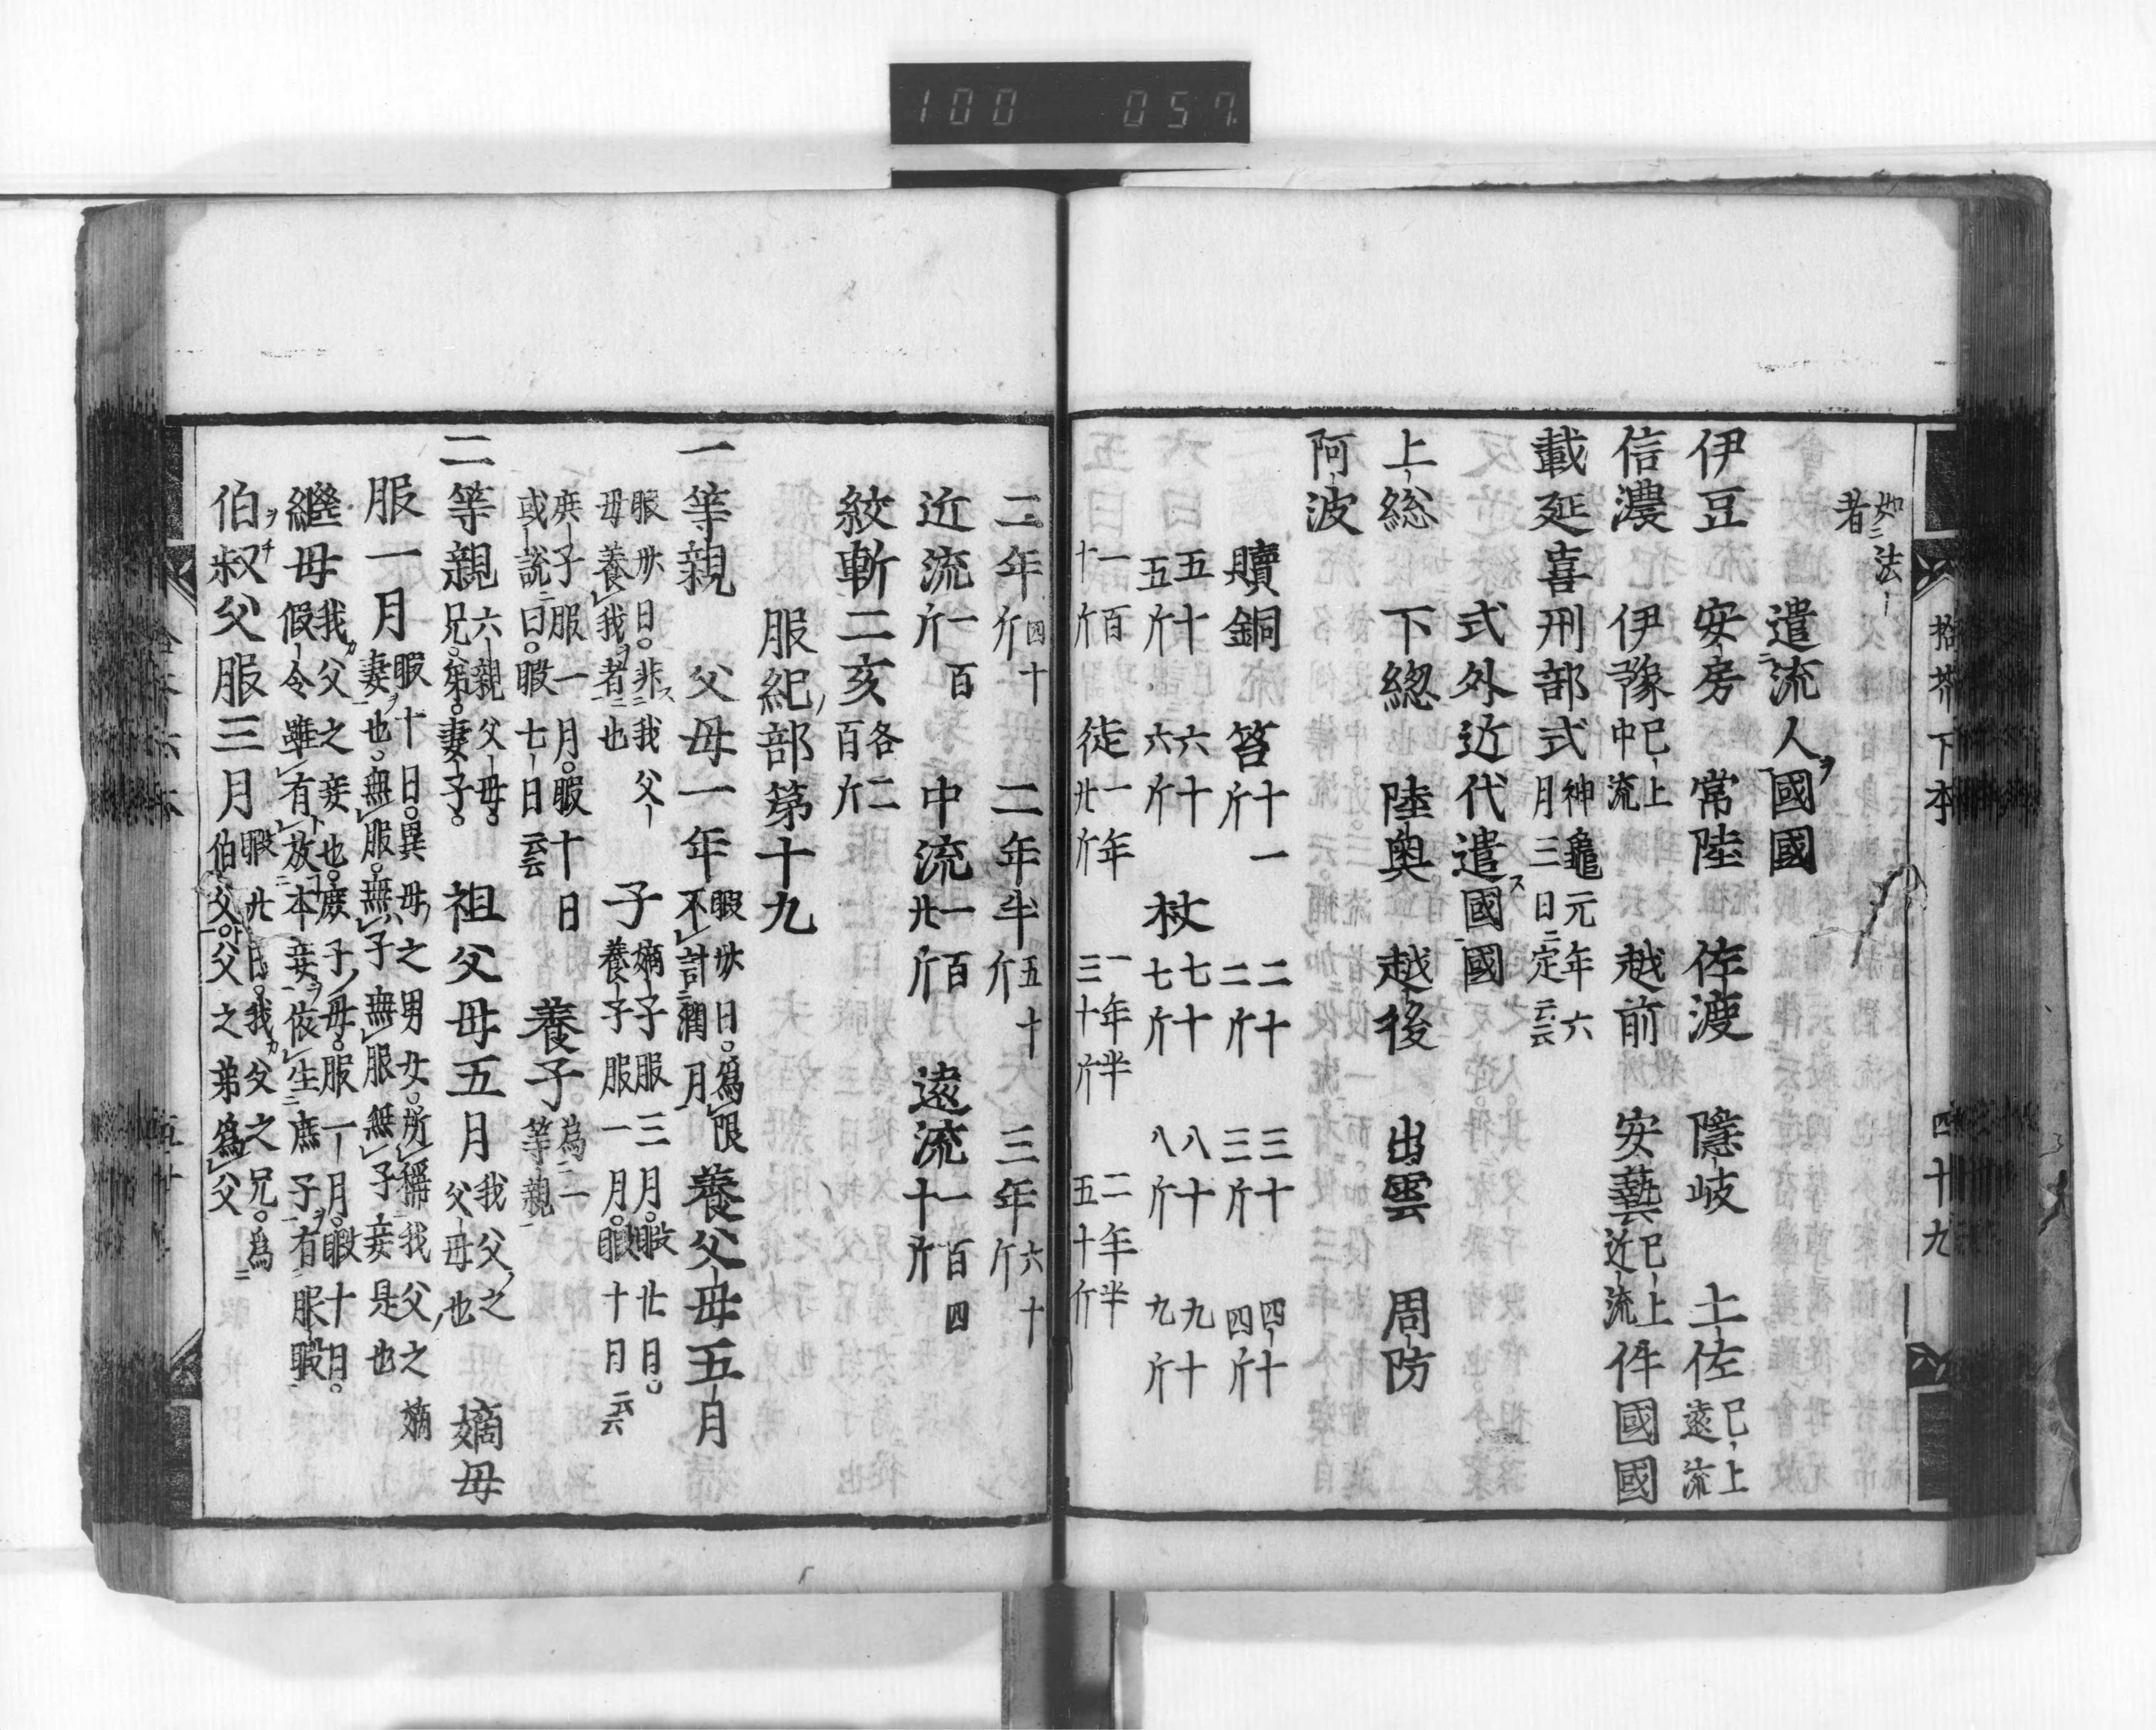 100 057
拾芥下本 四十九
如法
者
遣流人國國
伊豆 安房 常陸 佐渡 隱岐 土佐已上遠流
信濃 伊豫已上中流 越前 安藝已上近流件國國
載延喜刑部式神龜元年六月三日定云云
式外近代遣國國
上総 下総 陸奥 越後 出雲 周防
阿波
贖銅 笞十一斤 二十二斤 三十三斤 四十四斤
五十五斤 六十六斤 杖七十七斤 八十八斤 九十九斤
一百十斤 徒一年廿斤 一年半三十斤 二年半五十斤
二年四十斤 二年半五十斤 三年六十斤
近流一百斤 中流一百廿斤 遠流一百四十斤
絞斬二亥各二百斤
服紀部第十九
一等親 父母一年暇卅日爲限不計潤月 養父母五月
暇卅日非我父母養我者也 子嫡子服三月暇廿日養子服一月暇十日云云
庶子服一月暇十日或説曰暇七日云云 養子爲一等親
二等親六親父母兄弟妻子 祖父母五月我父之父母也 嫡母
服一月暇十日異母之男女所稱我父之嫡妻也無服無子無服無子妾是也
繼母我父之妾也庶子母服一月暇十日假令雖有放本妾依生庶子有服暇
伯叔父服三月暇廿日我父之兄爲伯父父之弟爲父